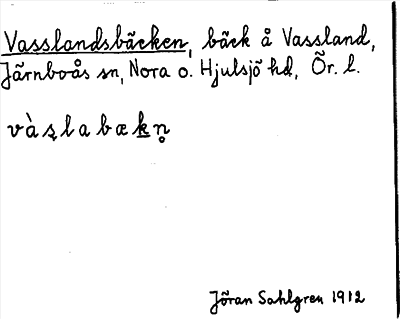 Vasslandsbäcken, bäck å Vassland,
Järnboås sn, Nora o. Hjulsjö hd, Ör. l.
vàşlabæḵn̥
Jöran Sahlgren 1912